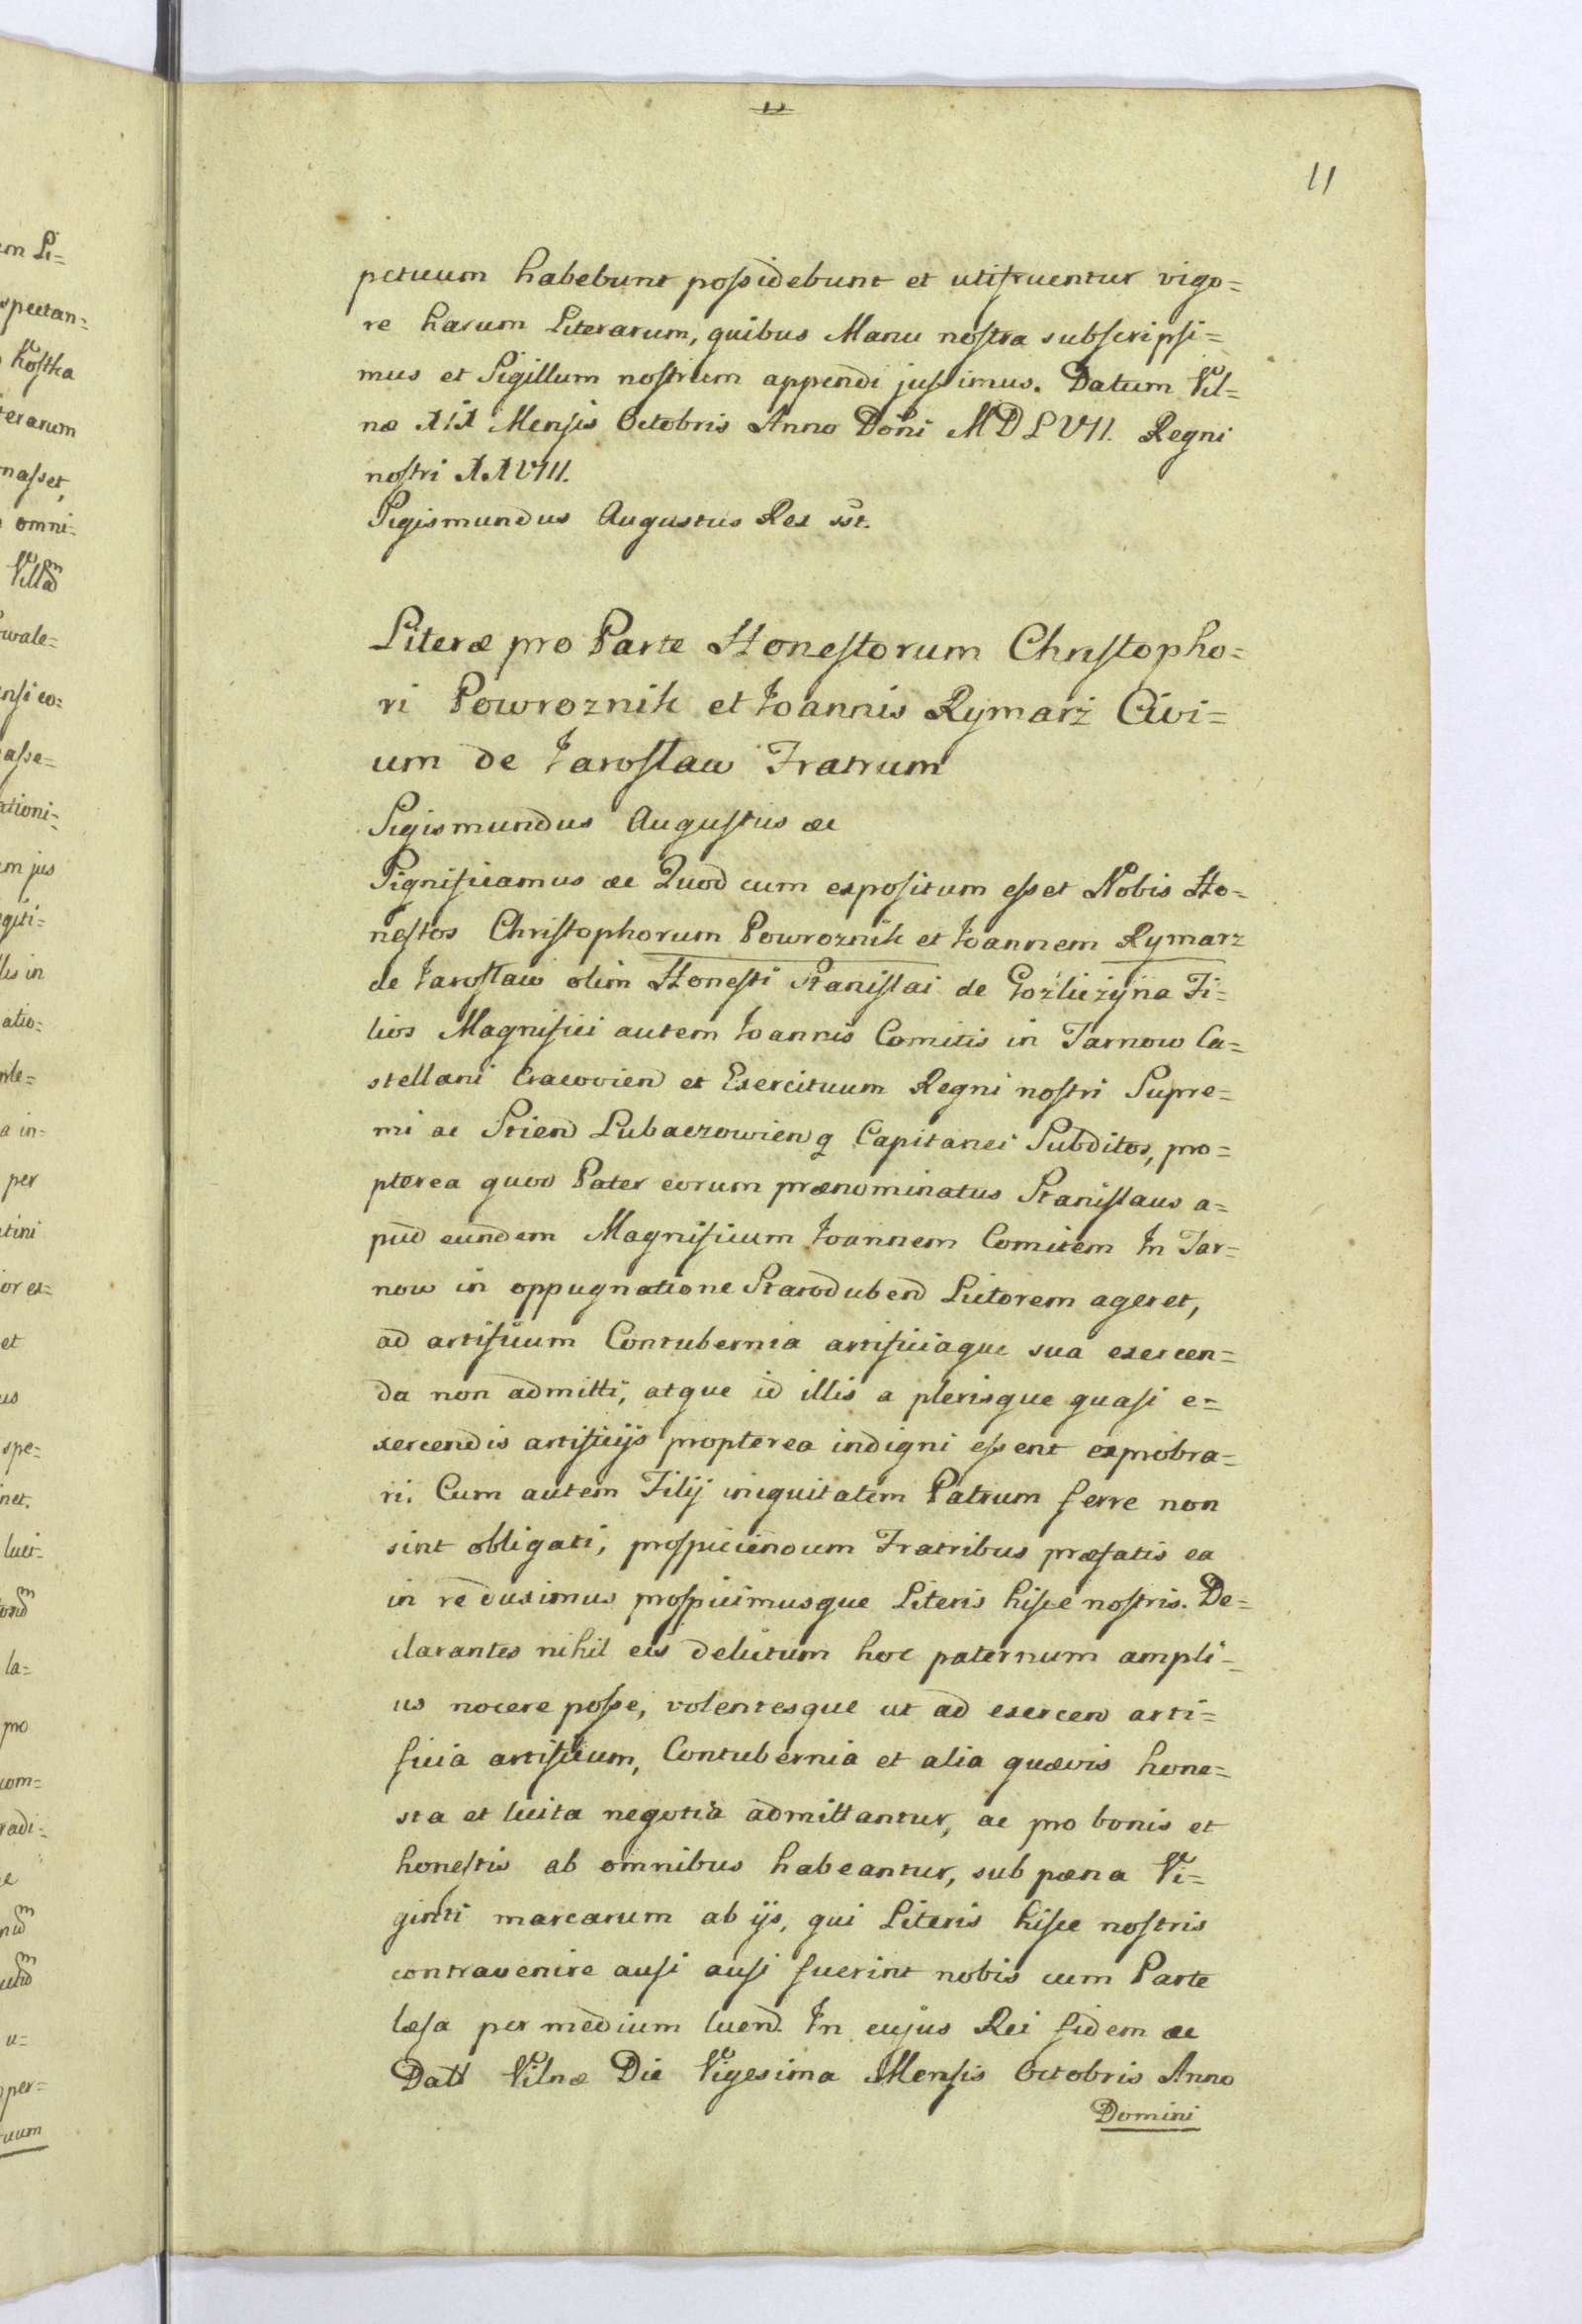 11
11
petuum habebunt possidebunt et utifruentur vigo=
re harum Literarum, quibus Manu nostra subscripsi=
mus et Sigillum nostrum appendi jussimus. Datum Vil=
næ XIX Mensis Octobris Anno Dōni MDLVII. Regni
nostri XXVIII.
Sigismundus Augustus Rex sst.
Literæ pro Parte Honestorum Christopho=
ri Powroznik et Joannis Rymarz Civi=
um de Jarosław Fratrum
Sigismundus Augustus &c
Significamus &c Quod cum expositum esset Nobis Ho=
nestos Christophorum Powroznik et Joannem Rymarz
de Jarosław olim Honesti Stanislai de Gozliczyna Fi=
lios Magnifici autem Joannis Comitis in Tarnow Ca=
stellani Cracovien et Exercituum Regni nostri Supre=
mi ac Strien Lubaczowienq Capitanei Subditos, pro=
pterea quod Pater eorum prænominatus Stanislaus a=
pud eundem Magnificum Joannem Comitem In Tar=
now in oppugnatione Staroduben Lictorem ageret,
ad artificum Contubernia artificiaque sua exercen=
da non admitti, atque id illis a plerisque quasi e=
xercendis artificijs propterea indigni essent exprobra=
ri. Cum autem Filij iniquitatem Patrum ferre non
sint obligati, prospiciendum Fratribus præfatis ea
in re duximus prospicimusque Literis hisce nostris. De=
clarantes nihil eis delictum hoc paternum ampli=
us nocere posse, volentesque ut ad exercen arti=
ficia artificum, Contubernia et alia quævis hone=
sta et licita negotia admittantur, ac pro bonis et
honestis ab omnibus habeantur, sub pæna Vi=
ginti marcarum ab ijs, qui Literis hisce nostris
contravenire ausi ausi fuerint nobis cum Parte
læsa per medium luend. In cujus Rei fidem &c
Datt Vilnæ Die Vigesima Mensis Octobris Anno
Domini